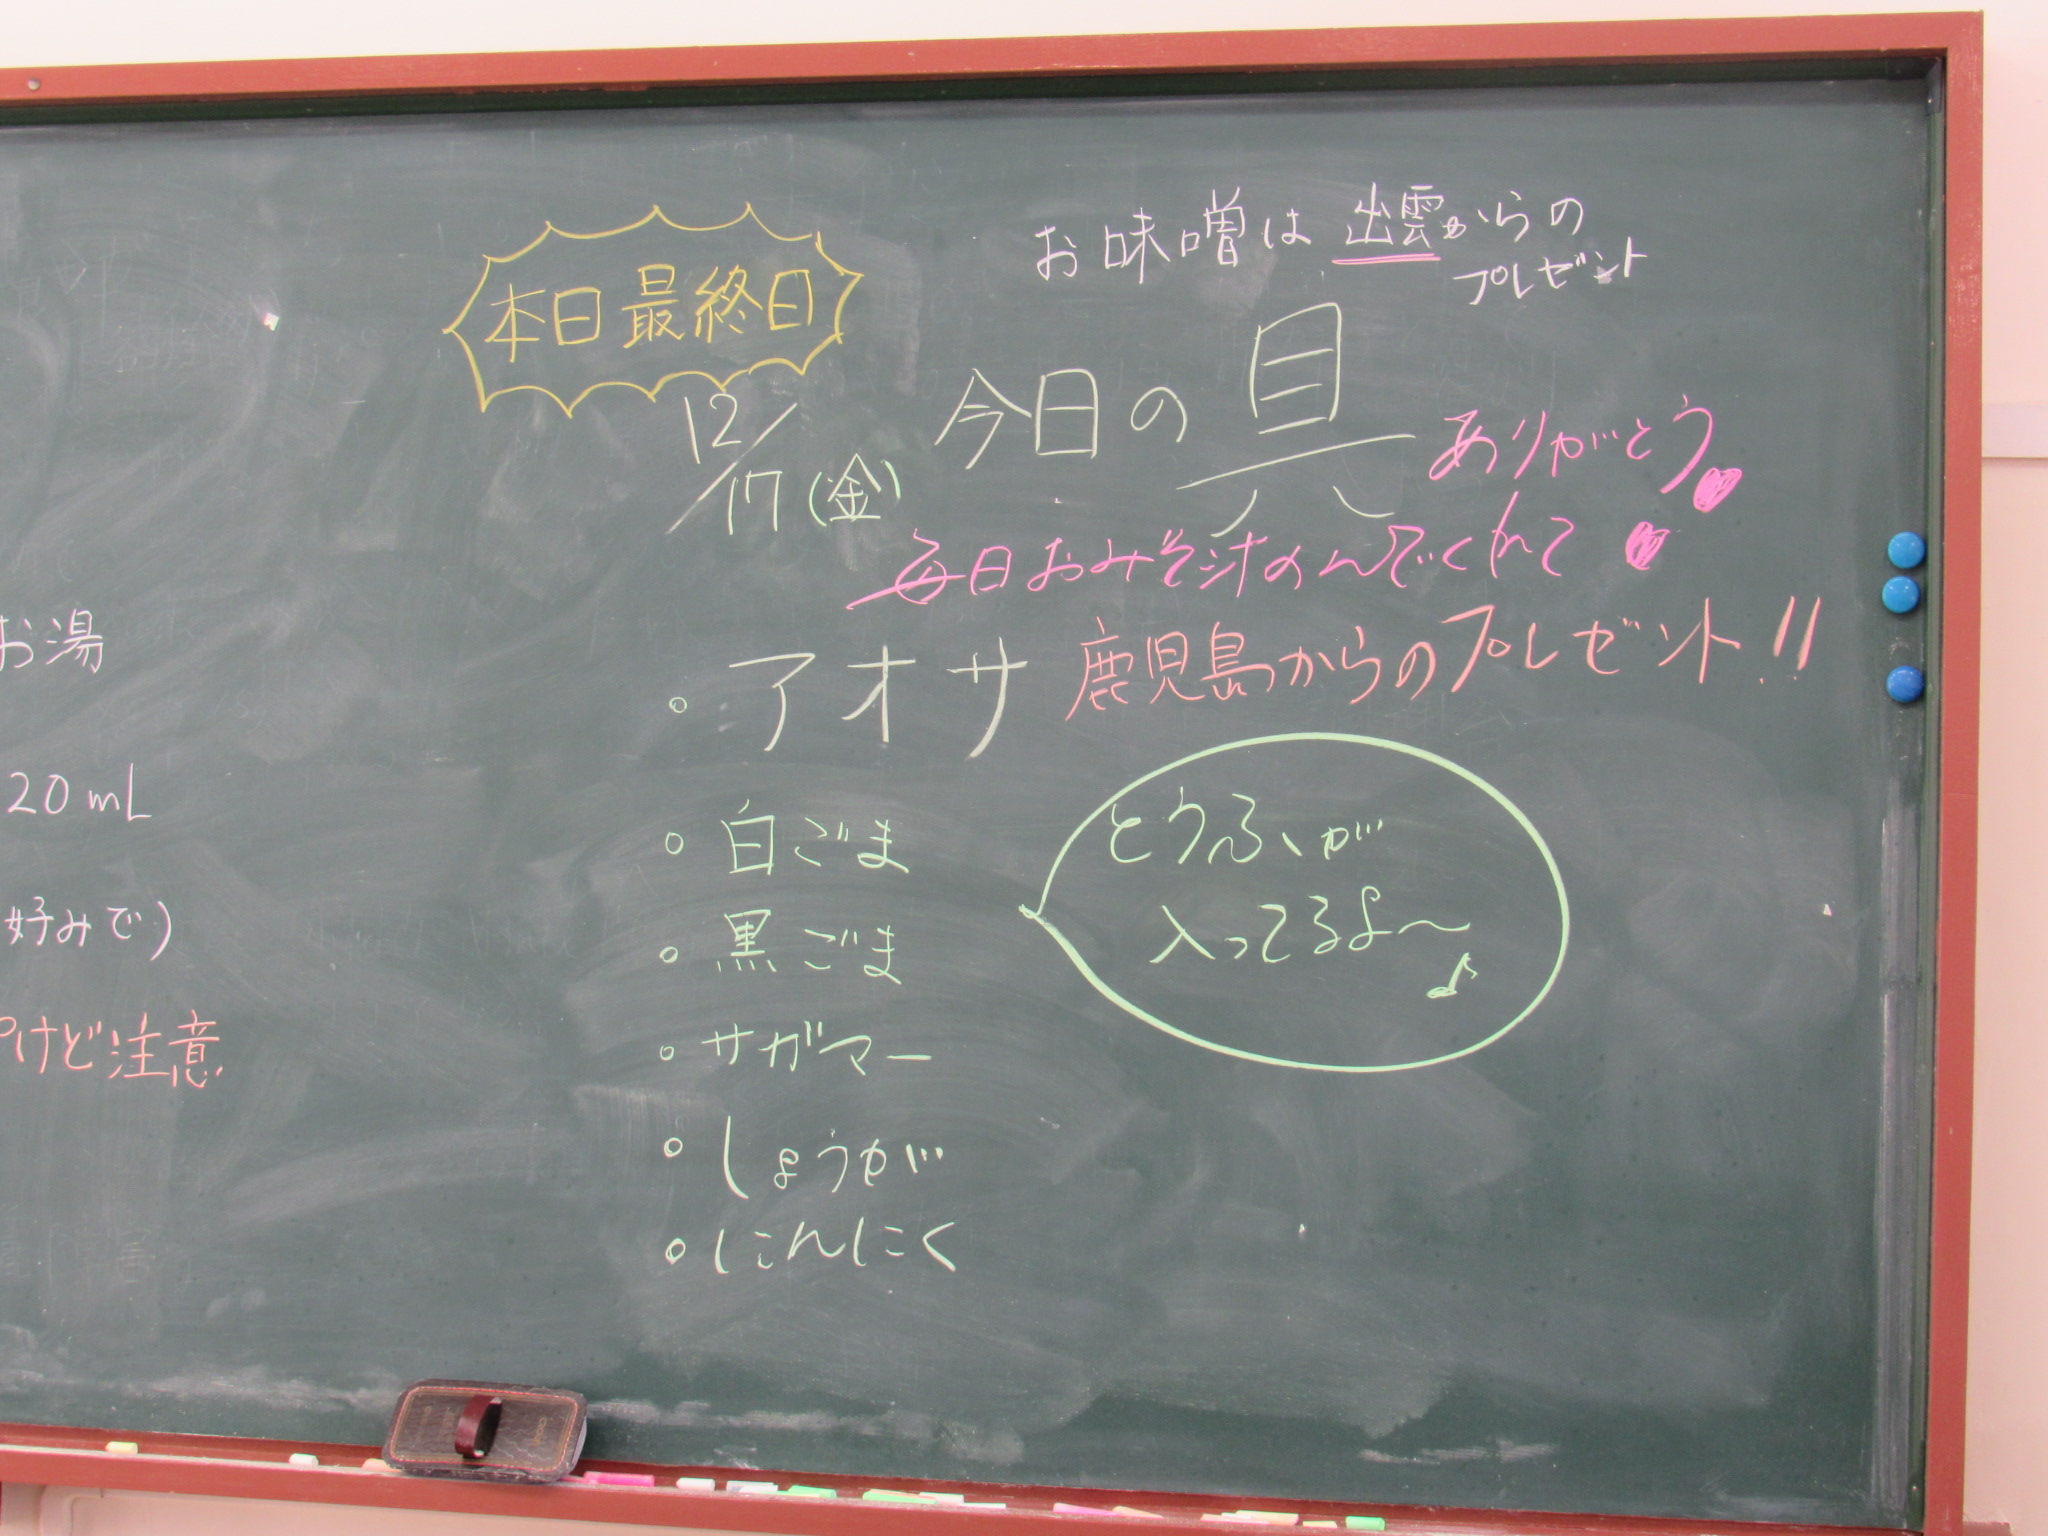 お味噌は 出雲からの
プレゼント
本日最終日
12/17(金)
今日の具
ありがとう
毎日おみそ汁のんでくれて
・アオサ 鹿児島からのプレゼント!!
・白ごま
・黒ごま
・サガマー
・しょうが
・にんにく
とうふが
入ってるよ〜♪
お湯
20mL
好みで)
けど注意